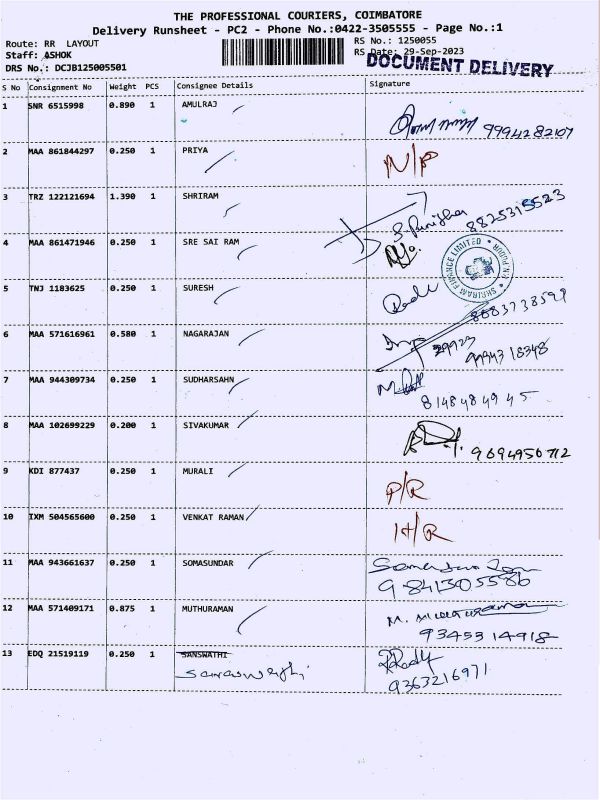 THE PROFESSIONAL COURIERS, COIMBATORE
Delivery Runsheet - PC2 - Phone No.:0422-3505555 - Page No.:1
Route: RR LAYOUT
RS No.: 1250055
Staff: ASHOK
RS Date: 29-Sep-2023
DRS No.: DCJB125005501
DOCUMENT DELIVERY
S No Consignment No Weight PCS Consignee Details Signature
1 SNR 6515998 0.890 1 AMULRAJ
9994282107
2 MAA 861844297 0.250 1 PRIYA N/P
3 TRZ 122121694 1.390 1 SHRIRAM
8825315523
4 MAA 861471946 0.250 1 SRE SAI RAM
SHRIRAM FINANCE LIMITED
5 TNJ 1183625 0.250 1 SURESH
8883738599
6 MAA 571616961 0.580 1 NAGARAJAN
9994318348
7 MAA 944309734 0.250 1 SUDHARSAHN
8148484945
8 MAA 102699229 0.200 1 SIVAKUMAR
9694950712
9 KDI 877437 0.250 1 MURALI P/R
10 IXM 504565600 0.250 1 VENKAT RAMAN H/R
11 MAA 943661637 0.250 1 SOMASUNDAR
9841305586
12 MAA 571409171 0.875 1 MUTHURAMAN M.
9345314918
13 EDQ 21519119 0.250 1 SANSWATHI
9363216971